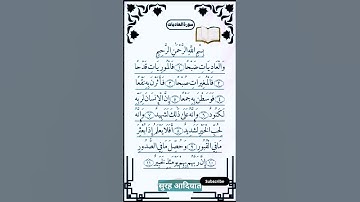 سورة العاديات
بِسْمِ اللَّهِ الرَّحْمَنِ الرَّحِيمِ
وَالْعَادِيَاتِ ضَبْحًا ١ فَالْمُورِيَاتِ قَدْحًا
٢ فَالْمُغِيرَاتِ صُبْحًا ٣ فَأَثَرْنَ بِهِ نَقْعًا
٤ فَوَسَطْنَ بِهِ جَمْعًا ٥ إِنَّ الْإِنْسَانَ لِرَبِّهِ
لَكَنُودٌ ٦ وَإِنَّهُ عَلَى ذَلِكَ لَشَهِيدٌ ٧ وَإِنَّهُ
لِحُبِّ الْخَيْرِ لَشَدِيدٌ ٨ أَفَلَا يَعْلَمُ إِذَا بُعْثِرَ
مَا فِي الْقُبُورِ ٩ وَحُصِّلَ مَا فِي الصُّدُورِ
١٠ إِنَّ رَبَّهُمْ بِهِمْ يَوْمَئِذٍ لَخَبِيرٌ ١١
Subscribe
सुरह आदियात